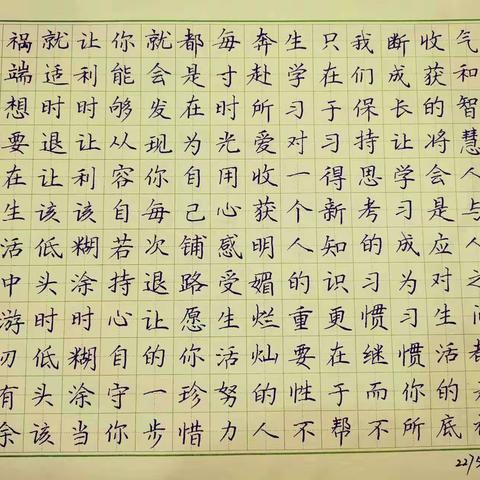 祸端想要在生活中游刃有余
就适时退让该低头时低头该
让利时让利该糊涂时糊涂当
你能够从容自若持心自守你
就会发现你每次退让的一步
都是在为自己铺路愿你珍惜
每寸时光用心感受生活努力
奔赴所爱收获明媚烂灿的人
生学习对一个人的重要性不
只在于习得新知识更在于帮
我们保持思考的习惯继而不
断成长让学习成为习惯你所
收获的将会是应对生活的底
气和智慧人与人之间都